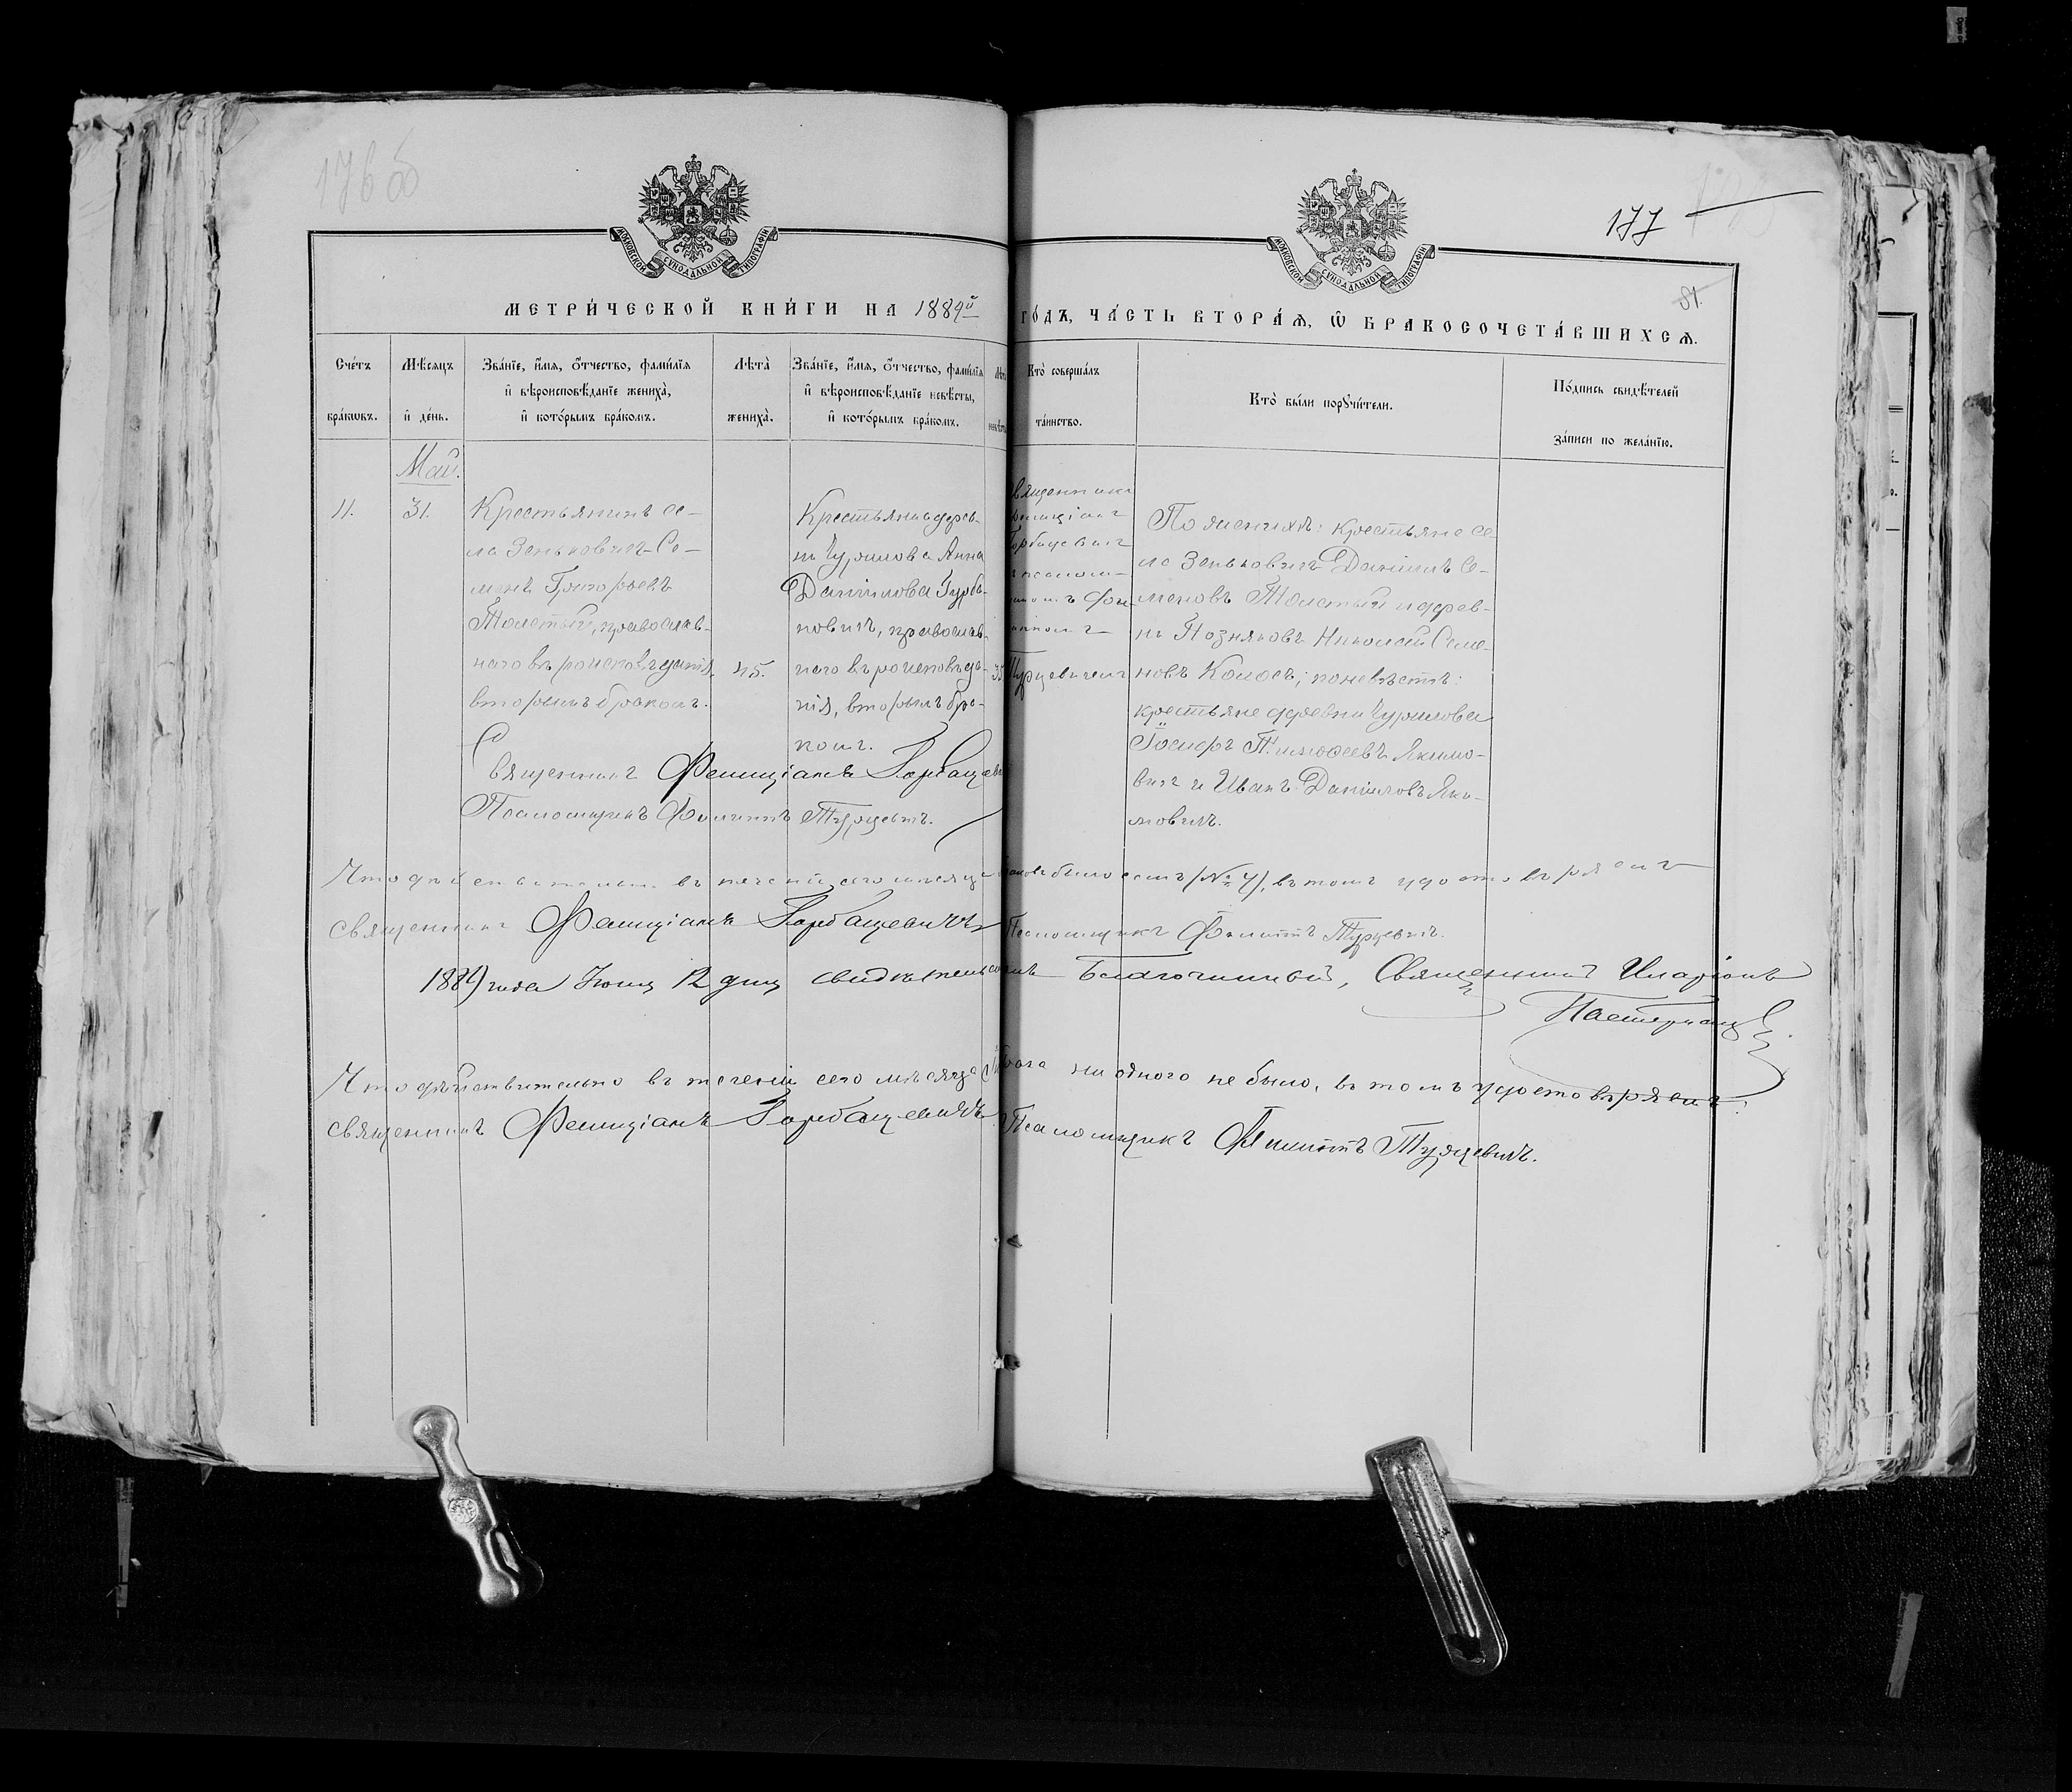 176 об
177
81.
МОСКОВСКОЙ СѴНОДАЛЬНОЙ ТИПОГРАФІИ
МОСКОВСКОЙ СѴНОДАЛЬНОЙ ТИПОГРАФІИ
МЕТРИ́ЧЕСКОЙ КНИ́ГИ НА 1889й ГО́ДЪ, ЧА́СТЬ ВТОРА́Ѧ, Ѽ БРАКОСОЧЕТА́ВШИХСѦ.
Сче́тъ
бра́кѡвъ.
Мѣ́сяцъ
и҆ де́нь.
Зва́нїе, и҆́мѧ, ѻ҆́тчество, фами́лїѧ
и҆ вѣроисповѣ́данїе жениха̀,
и҆ кото́рымъ бра́комъ.
Лѣта̀
жениха̀.
Зва́нїе, и҆́мѧ, ѻ҆́тчество, фами́лїѧ
и҆ вѣроисповѣ́данїе невѣ́сты,
и҆ кото́рымъ бра́комъ.
Кто̀ соверша́лъ
та́инство.
Кто̀ бы́ли порꙋчи́тели.
По́дпись свидѣ́телей
за́писи по жела́нїю.
Май.
11.
31.
Крестьянинъ се-
ла Зеньковичъ Се-
менъ Григорьевъ
Толстый, православ-
наго вѣроисповѣданія,
вторымъ бракомъ.
45.
Крестьянка дерев-
ни Чурилова Анна
Даніилова Гурба-
новичъ, православ-
наго вѣроисповѣда-
нія, вторымъ бра-
комъ.
35
Священникъ
Фелиціанъ
Горбацевичъ
съ псалом-
Турцевичемъ
По женихѣ: крестьяне се-
ла Зеньковичъ Даніилъ Се-
меновъ Толстый и дерев-
ни Позняковъ Николай Семе-
новъ Колосъ; по невѣстѣ:
крестьяне деревни Чурилова
Іосифъ Тимоѳеевъ Якимо-
вичъ и Иванъ Даніиловъ Яки-
мовичъ.
Священникъ Фелиціанъ Горбацевичъ
Псаломщикъ Филиппъ Турцевичъ.
Что дѣйствительно въ теченіи сего мѣсяца браковъ было семь (№ 7), въ томъ удостовѣряемъ
священникъ Фелиціанъ Горбацевичъ Псаломщикъ Филиппъ Турцевичъ.
1889 года Іюня 12 дня свидѣтельствовалъ Благочинный, Священникъ Иларіонъ
Пастернацкій.
Что дѣйствительно въ теченіи сего мѣсяца брака ни одного не было, въ томъ удостовѣряемъ:
священникъ Фелиціанъ Горбацевичъ. Псаломщикъ Филиппъ Турцевичъ.